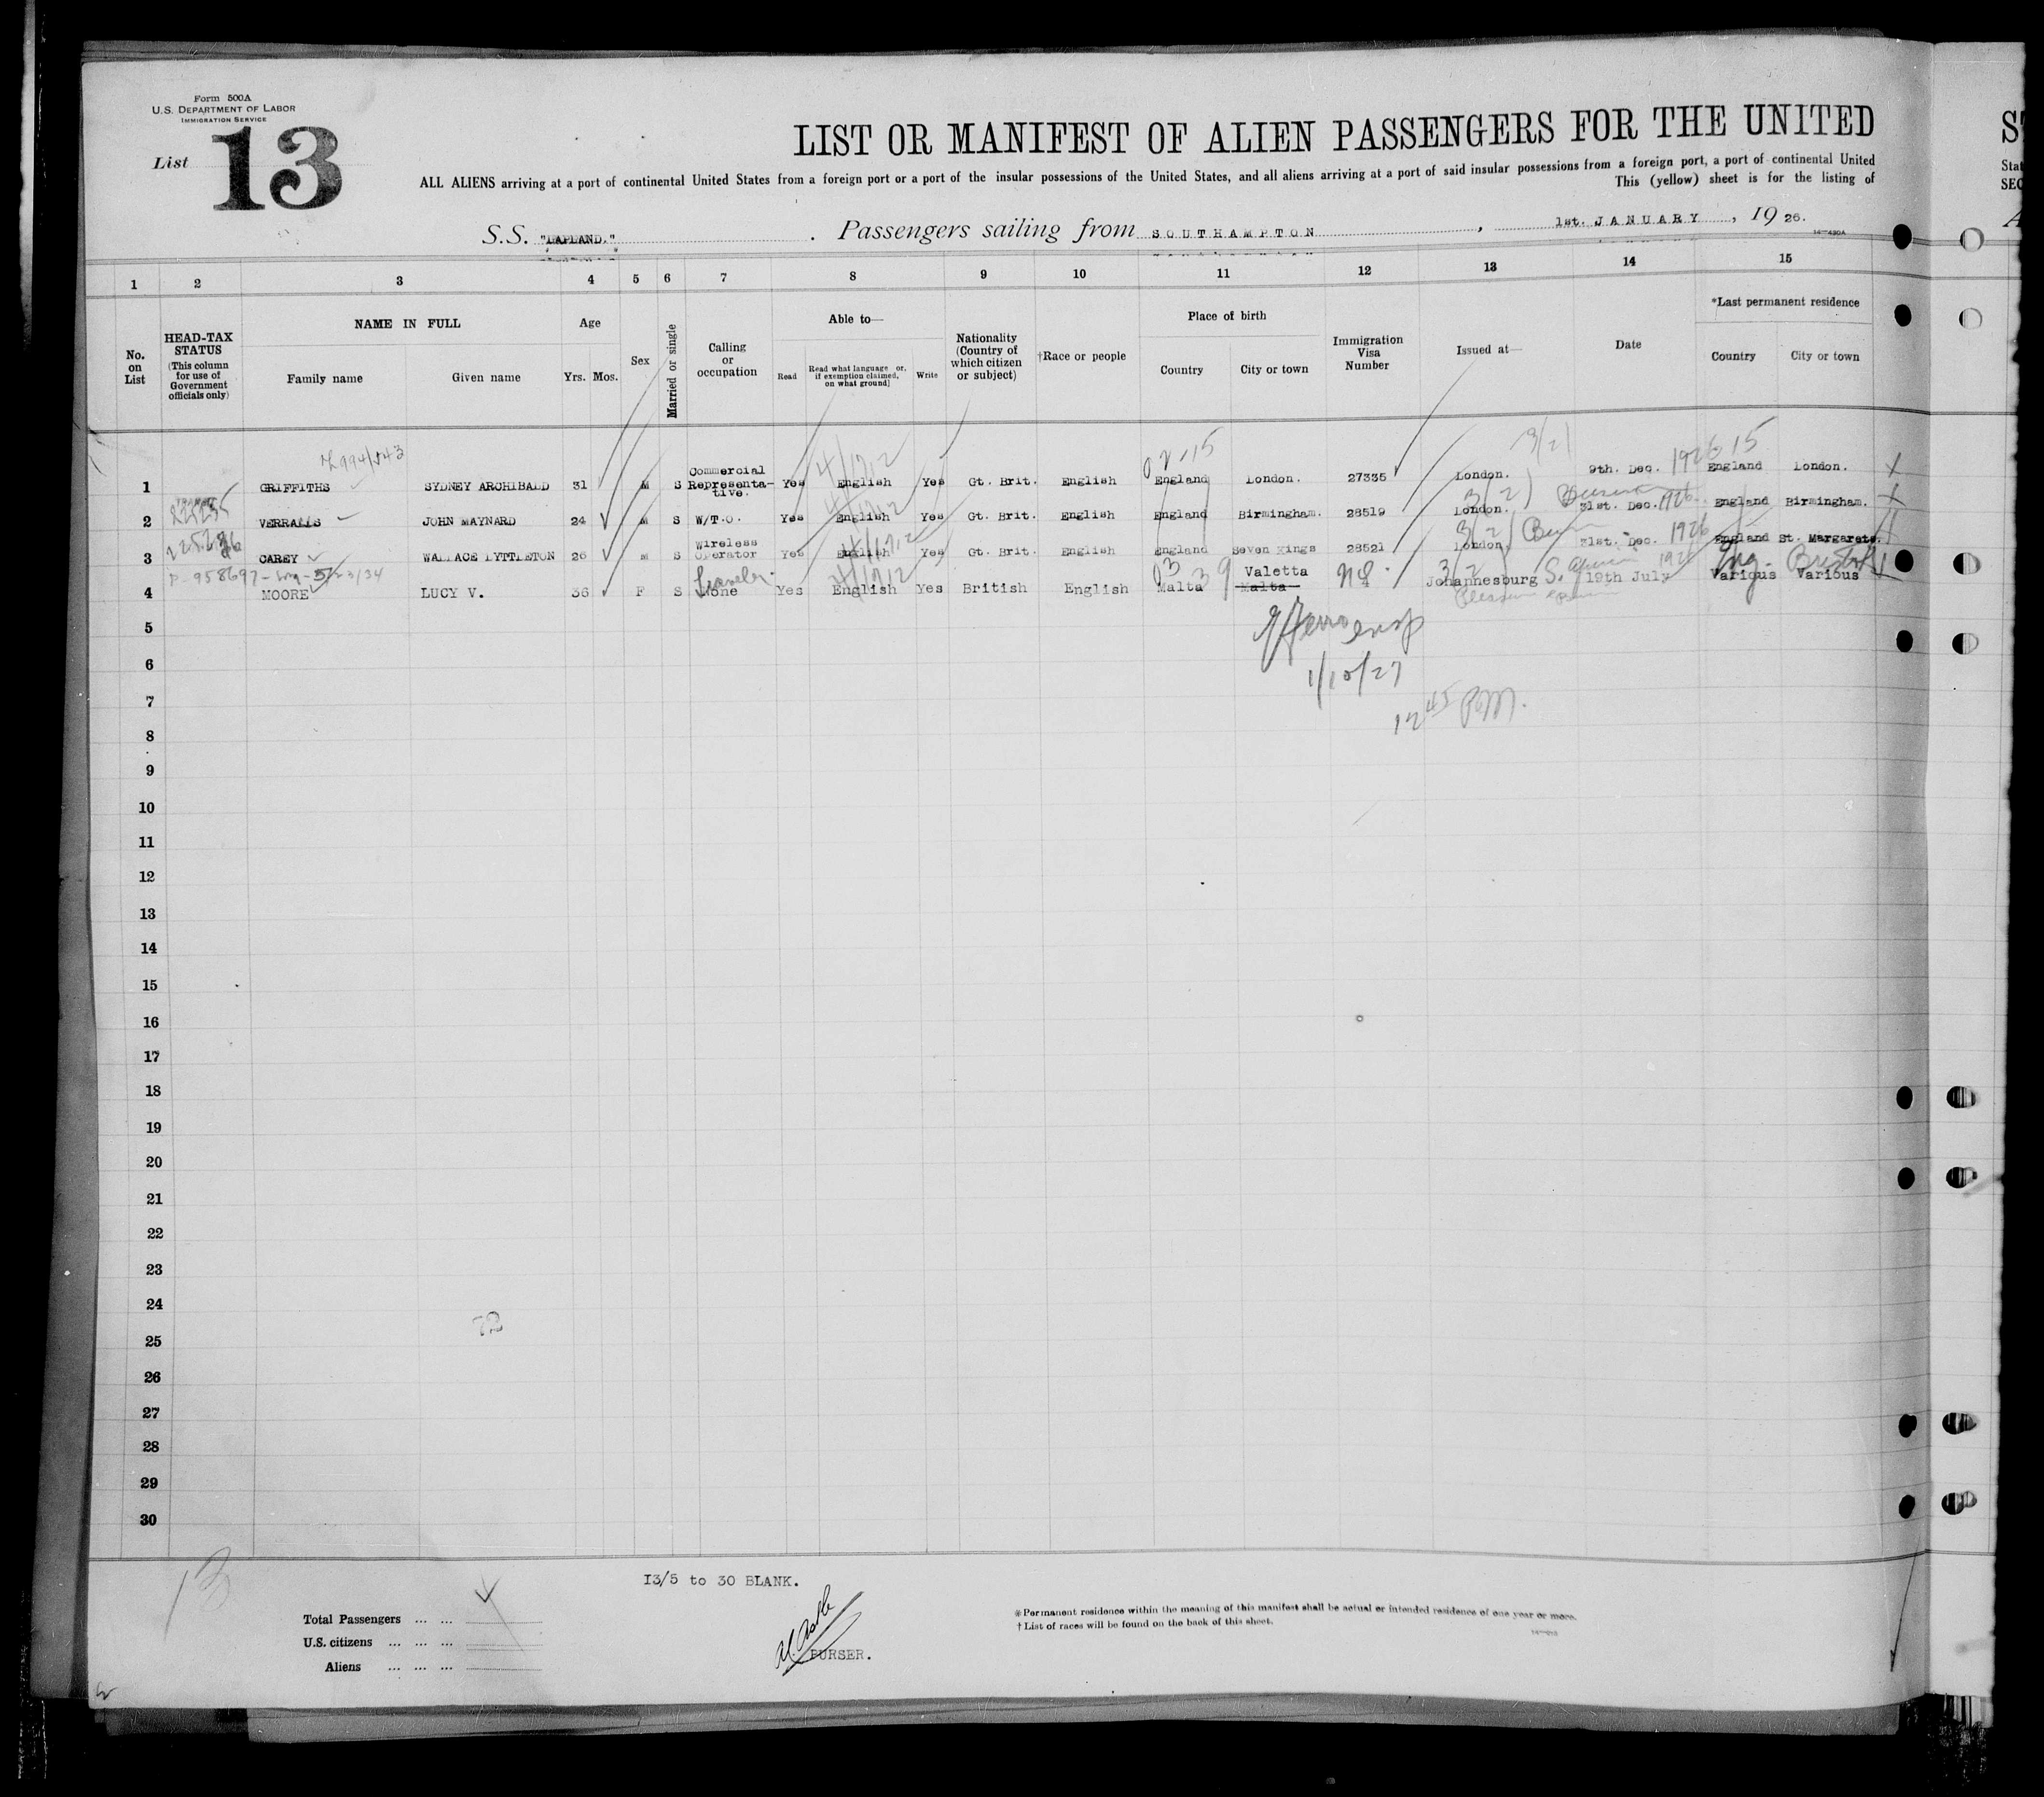 Form 500A
U.S. DEPARTMENT OF LABOR
IMMIGRATION SERVICE
List 13
LIST OR MANIFEST OF ALIEN PASSENGERS FOR THE UNITED
ALL ALIENS arriving at a port of continental United States from a foreign port or a port of the insular possessions of the United States, and all aliens arriving at a port of said insular possessions from a foreign port, a port of continental United
This (yellow) sheet is for the listing of
S.S. "LAPLAND." Passengers sailing from SOUTHAMPTON, 1st. JANUARY, 1926.
1 2 3 4 5 6 7 8 9 10 11 12 13 14 15
No. on List
HEAD-TAX STATUS (This column for use of Government officials only)
NAME IN FULL
Family name Given name
Age
Yrs. Mos.
Sex
Married or single
Calling or occupation
Able to—
Read Read what language or, if exemption claimed, on what ground] Write
Nationality (Country of which citizen or subject)
†Race or people
Place of birth
Country City or town
Immigration Visa Number
Issued at—
Date
*Last permanent residence
Country City or town
3/2/
02-15
15
1 GRIFFITHS SYDNEY ARCHIBALD 31 M S Commercial Representative. Yes English Yes Gt. Brit. English England London. 27335 London. 9th. Dec. 1926 England London.
2 VERRALLS JOHN MAYNARD 24 M S W/T.O. Yes English Yes Gt. Brit. English England Birmingham. 28519 London. 31st. Dec. 1926 England Birmingham.
3 CAREY WALLACE LYTTLETON 26 M S Wireless Operator Yes English Yes Gt. Brit. English England Seven Kings 28521 London. 31st. Dec. 1926 England St. Margarets.
4 MOORE LUCY V. 36 F S None Yes English Yes British English Malta Valetta Malta Johannesburg S. Africa 19th July Various Various
5
1/10/27
6
7
12 45 PM.
8
9
10
11
12
13
14
15
16
17
18
19
20
21
22
23
24
72
25
26
27
28
29
30
13
13/5 to 30 BLANK.
Total Passengers ... ...
U.S. citizens ... ... ...
Aliens ... ... ...
PURSER.
*Permanent residence within the meaning of this manifest shall be actual or intended residence of one year or more.
†List of races will be found on the back of this sheet.